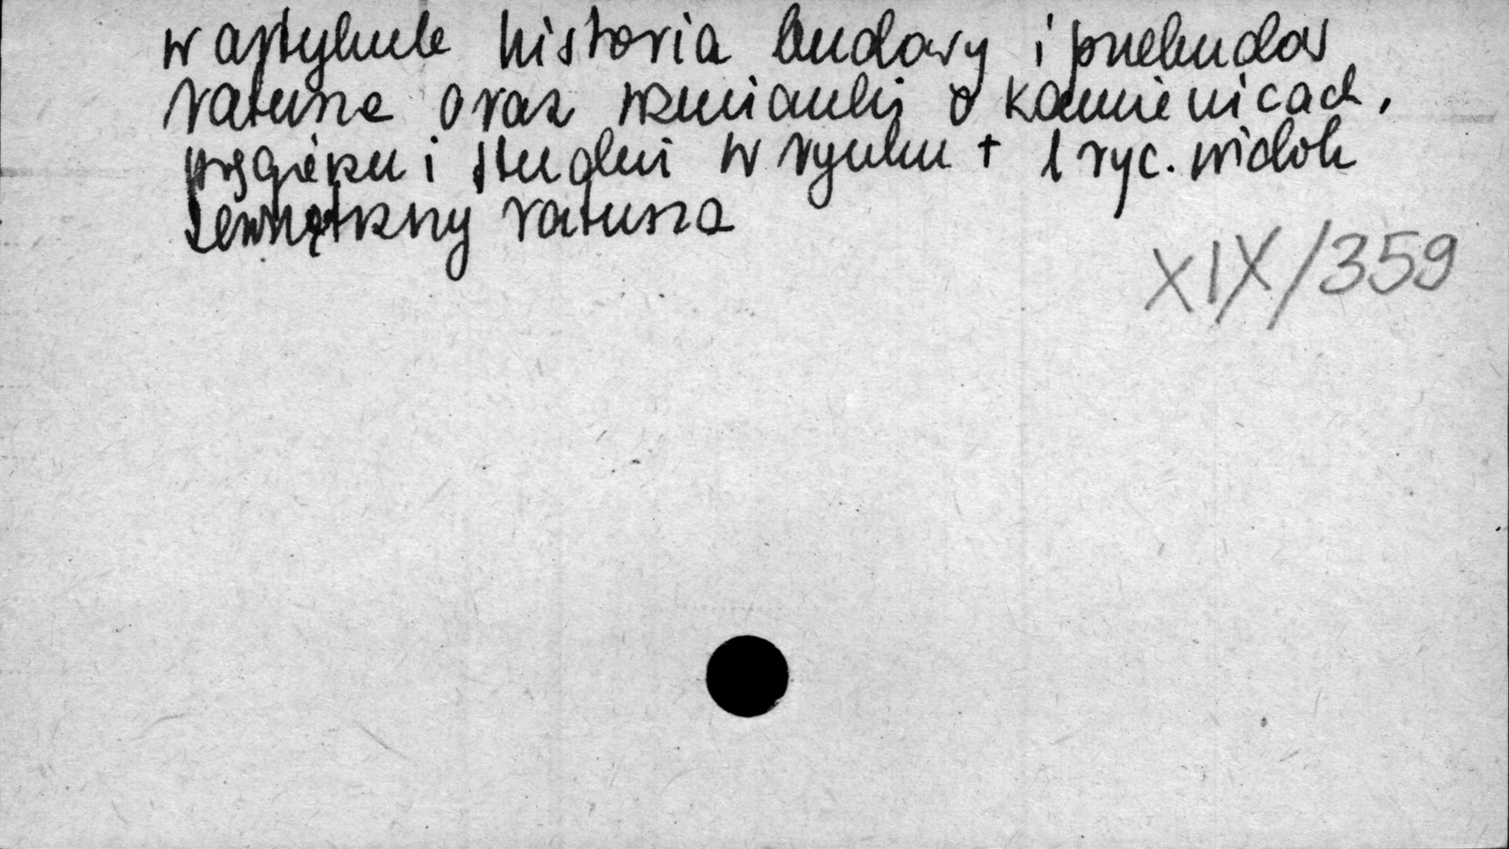 w artykule historia budowy i przebudów
ratusza oraz wzmianki o kamienicach,
pręgierzu i studni w rynku + 1 ryc. widok
zewnętrzny ratusza
XIX/359